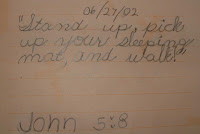 06/27/02
"Stand up, pick
up your sleeping
mat, and walk!"
John 5:8